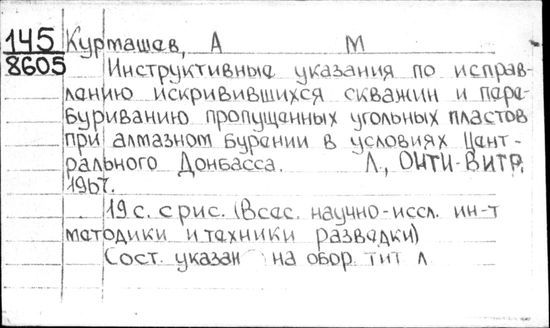 145 Курташев, А М
8605
Инструктивные указания по исправ-
лению искривившихся скважин и пере-
буриванию пропущенных угольных пластов
при алмазном бурении в условиях Цент-
рального Донбасса. Л., ОНТИ-ВИТР,
1967.
19 с. с рис. (Всес. научно-иссл. ин-т
методики и техники разведки)
Сост. указан на обор. тит л